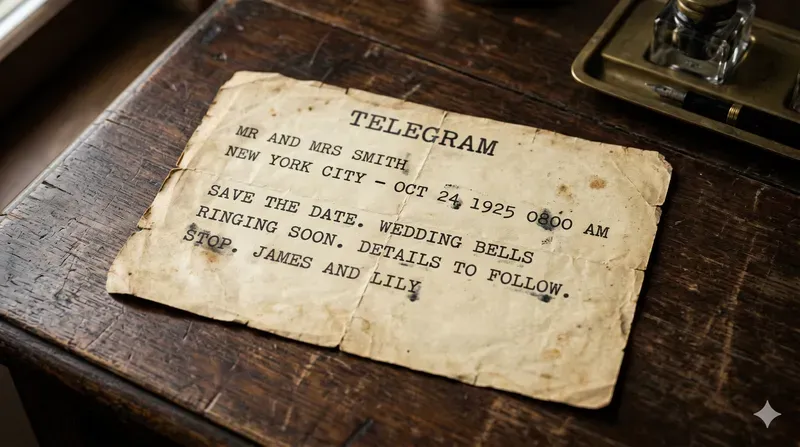 TELEGRAM
MR AND MRS SMITH
NEW YORK CITY – OCT 24 1925 0800 AM
SAVE THE DATE. WEDDING BELLS
RINGING SOON. DETAILS TO FOLLOW.
STOP. JAMES AND LILY